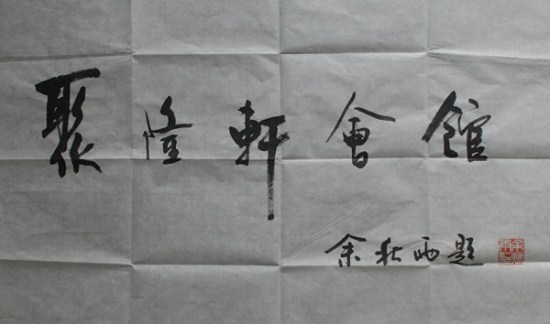 聚隆軒會館
余秋雨題